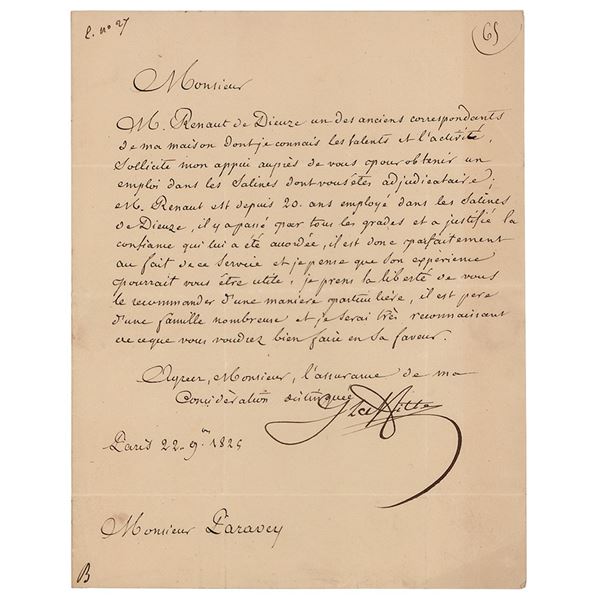 L. nº 27
65
Monsieur
M. Renaut de Dieuze un des anciens correspondants
de ma maison dont je connais les talents et l'activité,
sollicite mon appui auprès de vous pour obtenir un
emploi dans les Salines dont vous êtes adjudicataire;
M. Renaut est depuis 20. ans employé dans les Salines
de Dieuze, il y a passé par tous les grades et a justifié la
confiance qui lui a été accordée, il est donc parfaitement
au fait de ce Service et je pense que son expérience
pourrait vous être utile; je prens la liberté de vous
le recommander d'une maniere particulière, il est pere
d'une famille nombreuse et je serai très reconnaissant
de ce que vous voudrez bien faire en sa faveur.
Agréez, Monsieur, l'assurance de ma
Considération distinguée
J Laffitte
Paris 22. 9.bre 1825
Monsieur Paravey
B